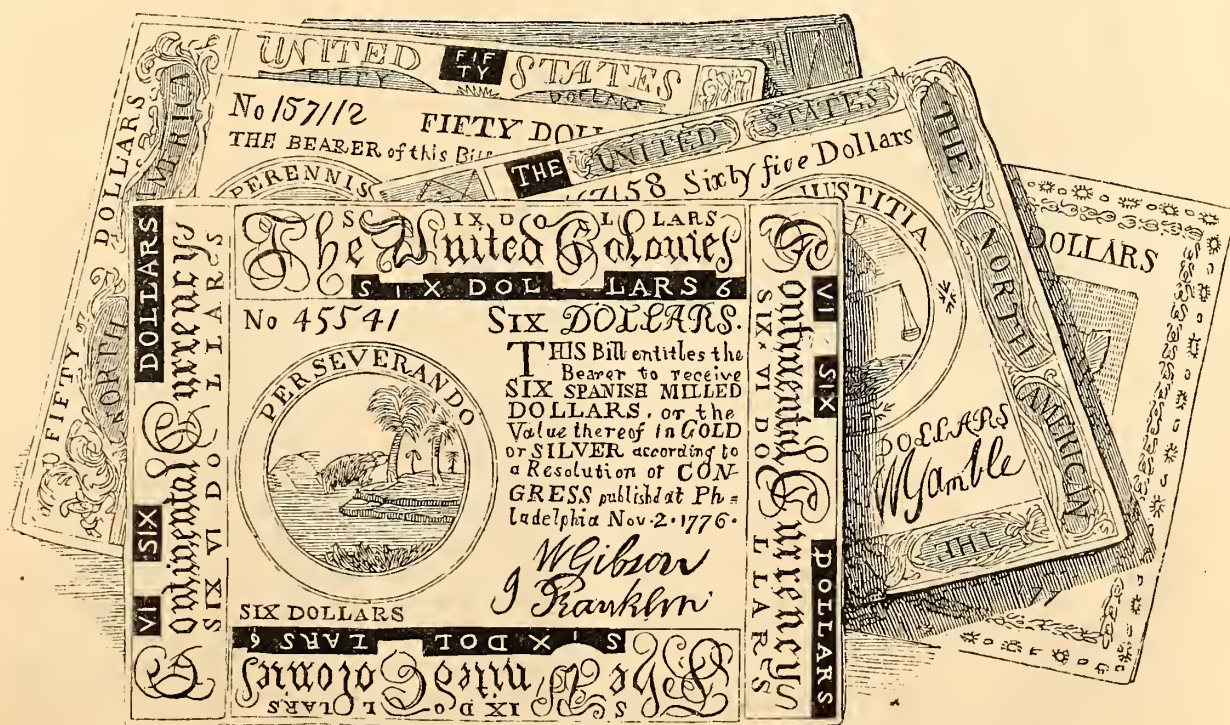 UNITED FIFTY STATES
FIFTY DOLLARS
No 157112 FIFTY
THE BEARER of this Bill
PERENNIS
FIFTY DOLLARS
NORTH
THE UNITED STATES
THE NORTH AMERICAN
THE
7158 Sixty five Dollars
JUSTITIA
DOLLARS
WGamble
DOLLARS
SIX DOLLARS
The United Colonies
SIX DOLLARS 6
No 45541 SIX DOLLARS.
PERSEVERANDO
THIS Bill entitles the
Bearer to receive
SIX SPANISH MILLED
DOLLARS, or the
Value thereof in GOLD
or SILVER according to
a Resolution of CON-
GRESS publishd at Ph=
ladelphia Nov.2.1776.
WGibson
J Franklin
SIX DOLLARS
VI SIX DOLLARS
Continental Currency
SIX VI DO LLARS
Continental Currency
SIX VI DO LLARS
VI SIX DOLLARS
SIX DOLLARS 6
The United Colonies
SIX DO L LARS